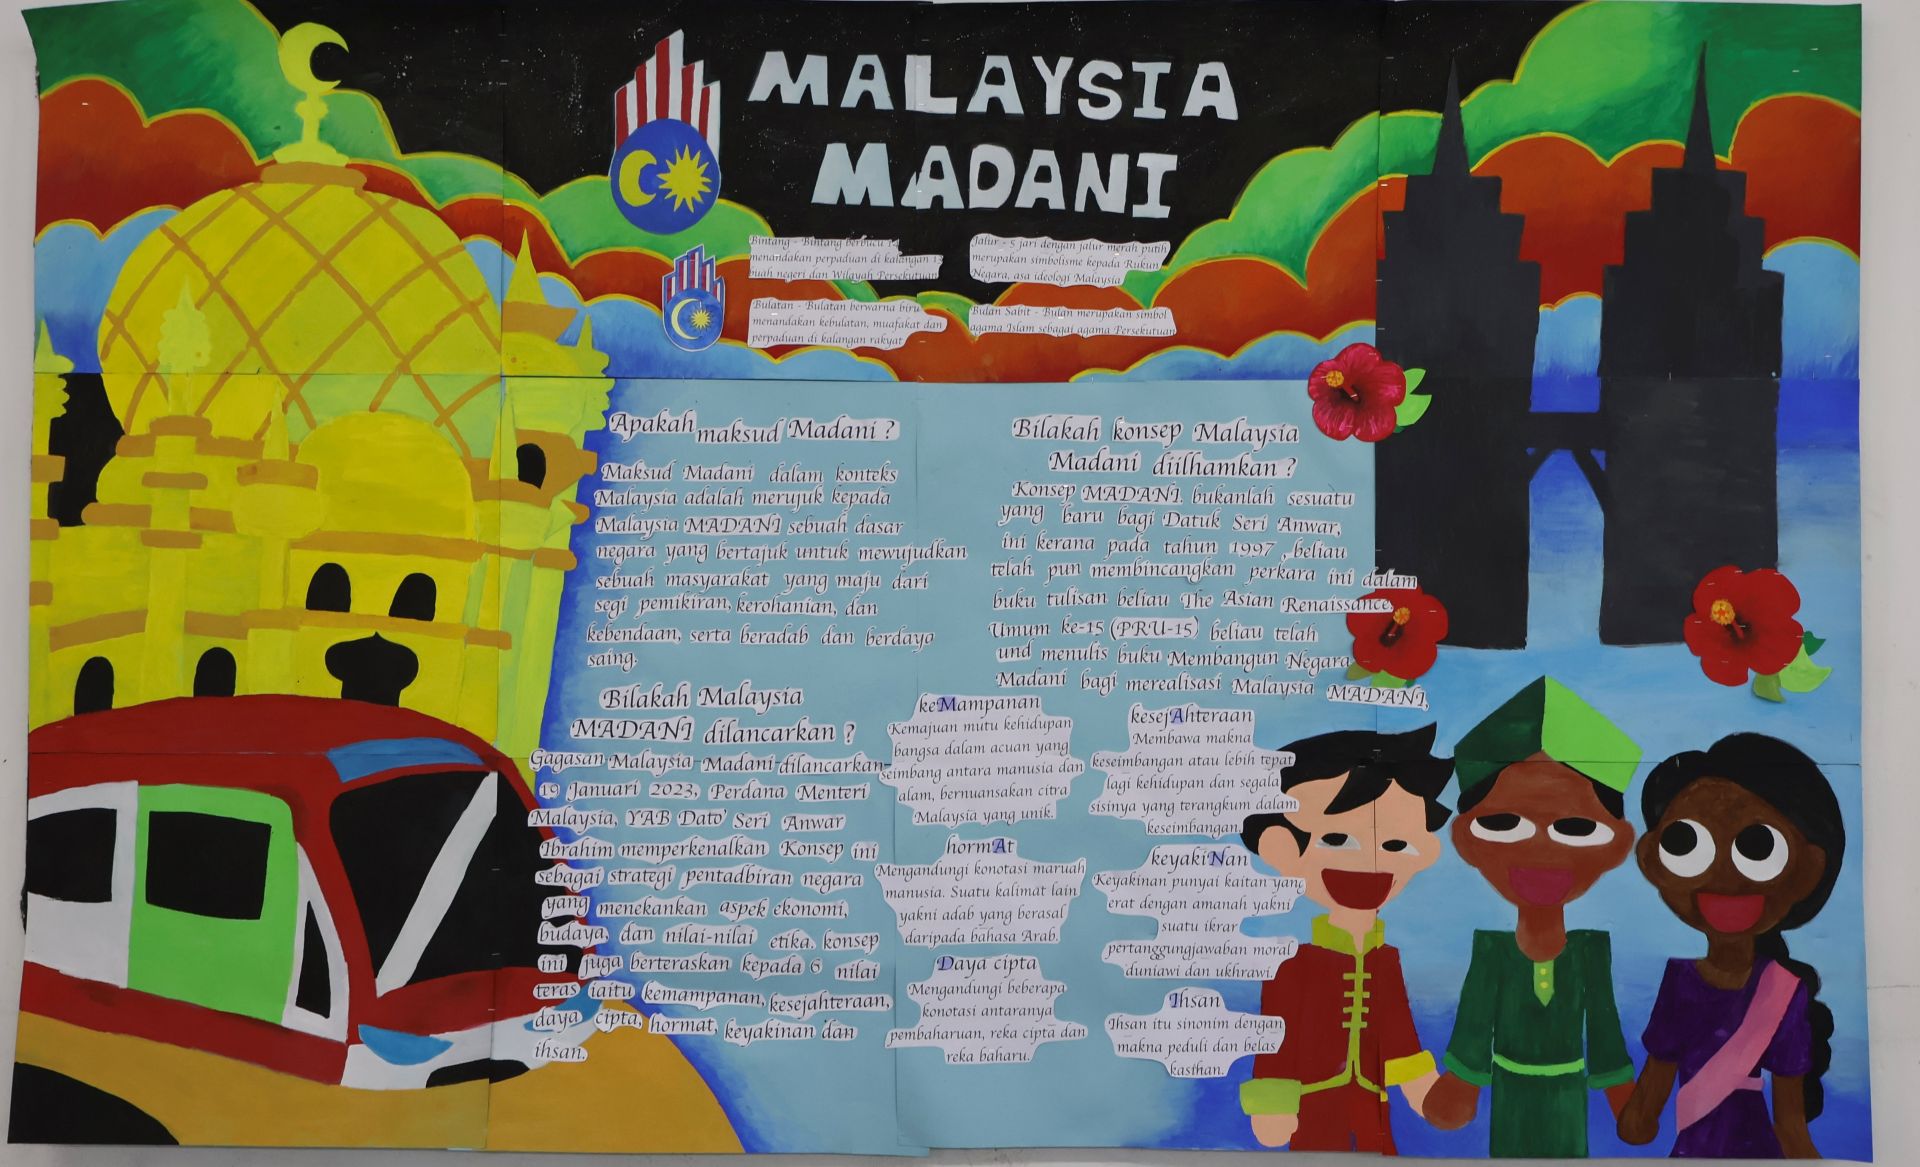 MALAYSIA
MADANI
Bintang - Bintang berbucu 14
menandakan perpaduan di kalangan 13
buah negeri dan Wilayah Persekutuan
Bulatan - Bulatan berwarna biru
menandakan kebulatan, muafakat dan
perpaduan di kalangan rakyat
Jalur - 5 jari dengan jalur merah putih
merupakan simbolisme kepada Rukun
Negara, asa ideologi Malaysia
Bulan Sabit - Bulan merupakan simbol
agama Islam sebagai agama Persekutuan
Apakah maksud Madani ?
Maksud Madani dalam konteks
Malaysia adalah merujuk kepada
Malaysia MADANI sebuah dasar
negara yang bertajuk untuk mewujudkan
sebuah masyarakat yang maju dari
segi pemikiran, kerohanian, dan
kebendaan, serta beradab dan berdaya
saing.
Bilakah Malaysia
MADANI dilancarkan ?
Gagasan Malaysia Madani dilancarkan
19 Januari 2023, Perdana Menteri
Malaysia, YAB Dato' Seri Anwar
Ibrahim memperkenalkan Konsep ini
sebagai strategi pentadbiran negara
yang menekankan aspek ekonomi,
budaya, dan nilai-nilai etika, konsep
ini juga berteraskan kepada 6 nilai
teras iaitu kemampanan, kesejahteraan,
daya cipta, hormat, keyakinan dan
ihsan.
Bilakah konsep Malaysia
Madani diilhamkan ?
Konsep MADANI. bukanlah sesuatu
yang baru bagi Datuk Seri Anwar,
ini kerana pada tahun 1997, beliau
telah pun membincangkan perkara ini dalam
buku tulisan beliau The Asian Renaissance,
Umum ke-15 (PRU-15) beliau telah
und menulis buku Membangun Negara
Madani bagi merealisasi Malaysia MADANI,
keMampanan
Kemajuan mutu kehidupan
bangsa dalam acuan yang
seimbang antara manusia dan
alam, bernuansakan citra
Malaysia yang unik.
hormAt
Mengandungi konotasi maruah
manusia. Suatu kalimat lain
yakni adab yang berasal
daripada bahasa Arab.
Daya cipta
Mengandungi beberapa
konotasi antaranya
pembaharuan, reka cipta dan
reka baharu.
kesejAhteraan
Membawa makna
keseimbangan atau lebih tepat
lagi kehidupan dan segala
sisinya yang terangkum dalam
keseimbangan.
keyakiNan
Keyakinan punyai kaitan yang
erat dengan amanah yakni
suatu ikrar
pertanggungjawaban moral
duniawi dan ukhrawi.
Ihsan
Ihsan itu sinonim dengan
makna peduli dan belas
kasihan.